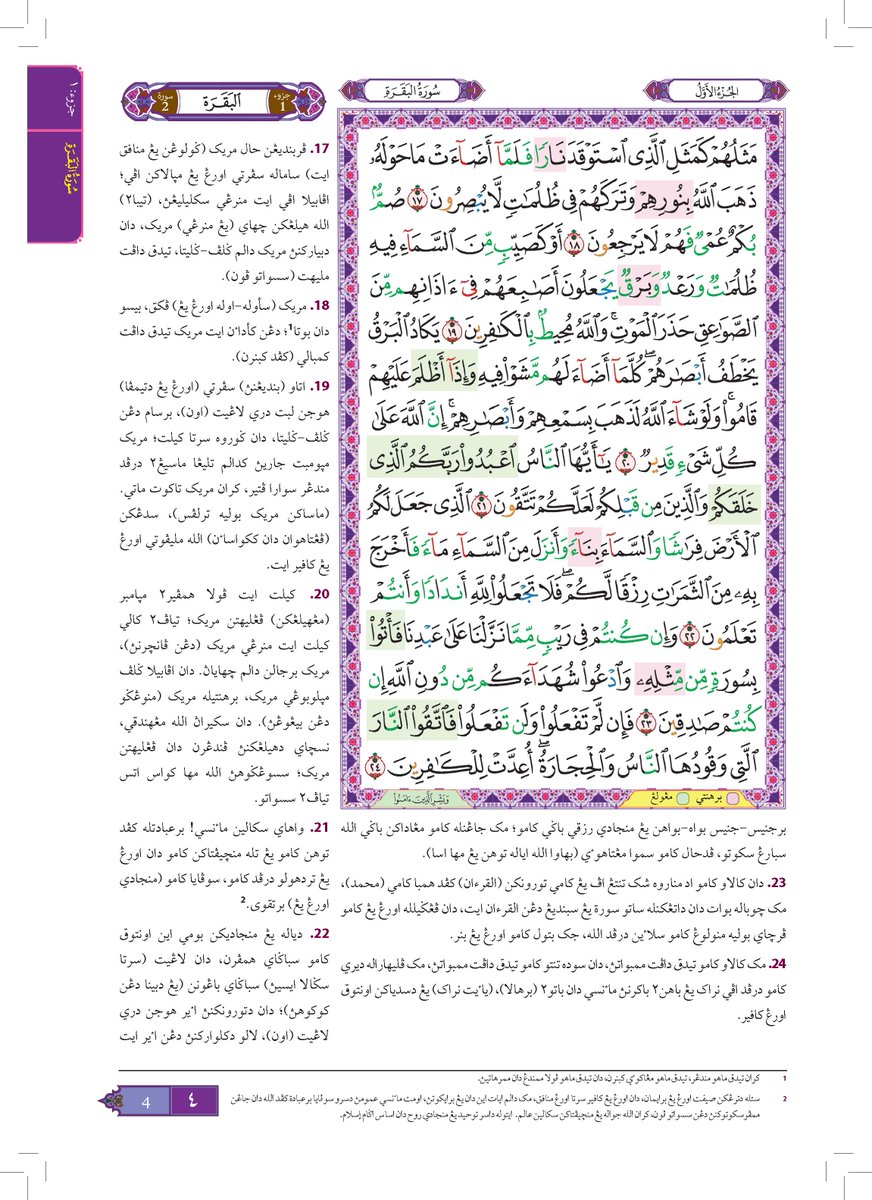 جزوء: ١
سُورَةُ الْبَقَرَةِ
سورة 2
اَلْبَقَرَة
جزوء 1
سُورَةُ الْبَقَرَةِ
الْجُزْءُ الْأَوَّلُ
مَثَلُهُمْ كَمَثَلِ ٱلَّذِى ٱسْتَوْقَدَ نَارًا فَلَمَّآ أَضَآءَتْ مَا حَوْلَهُۥ
ذَهَبَ ٱللَّهُ بِنُورِهِمْ وَتَرَكَهُمْ فِى ظُلُمَٰتٍ لَّا يُبْصِرُونَ ١٧ صُمٌّۢ
بُكْمٌ عُمْىٌ فَهُمْ لَا يَرْجِعُونَ ١٨ أَوْ كَصَيِّبٍ مِّنَ ٱلسَّمَآءِ فِيهِ
ظُلُمَٰتٌ وَرَعْدٌ وَبَرْقٌ يَجْعَلُونَ أَصَٰبِعَهُمْ فِىٓ ءَاذَانِهِم مِّنَ
ٱلصَّوَٰعِقِ حَذَرَ ٱلْمَوْتِ ۚ وَٱللَّهُ مُحِيطٌۢ بِٱلْكَٰفِرِينَ ١٩ يَكَادُ ٱلْبَرْقُ
يَخْطَفُ أَبْصَٰرَهُمْ ۖ كُلَّمَآ أَضَآءَ لَهُم مَّشَوْا۟ فِيهِ وَإِذَآ أَظْلَمَ عَلَيْهِمْ
قَامُوا۟ ۚ وَلَوْ شَآءَ ٱللَّهُ لَذَهَبَ بِسَمْعِهِمْ وَأَبْصَٰرِهِمْ ۚ إِنَّ ٱللَّهَ عَلَىٰ
كُلِّ شَىْءٍ قَدِيرٌ ٢٠ يَٰٓأَيُّهَا ٱلنَّاسُ ٱعْبُدُوا۟ رَبَّكُمُ ٱلَّذِى
خَلَقَكُمْ وَٱلَّذِينَ مِن قَبْلِكُمْ لَعَلَّكُمْ تَتَّقُونَ ٢١ ٱلَّذِى جَعَلَ لَكُمُ
ٱلْأَرْضَ فِرَٰشًا وَٱلسَّمَآءَ بِنَآءً وَأَنزَلَ مِنَ ٱلسَّمَآءِ مَآءً فَأَخْرَجَ
بِهِۦ مِنَ ٱلثَّمَرَٰتِ رِزْقًا لَّكُمْ ۖ فَلَا تَجْعَلُوا۟ لِلَّهِ أَندَادًا وَأَنتُمْ
تَعْلَمُونَ ٢٢ وَإِن كُنتُمْ فِى رَيْبٍ مِّمَّا نَزَّلْنَا عَلَىٰ عَبْدِنَا فَأْتُوا۟
بِسُورَةٍ مِّن مِّثْلِهِۦ وَٱدْعُوا۟ شُهَدَآءَكُم مِّن دُونِ ٱللَّهِ إِن
كُنتُمْ صَٰدِقِينَ ٢٣ فَإِن لَّمْ تَفْعَلُوا۟ وَلَن تَفْعَلُوا۟ فَٱتَّقُوا۟ ٱلنَّارَ
ٱلَّتِى وَقُودُهَا ٱلنَّاسُ وَٱلْحِجَارَةُ ۖ أُعِدَّتْ لِلْكَٰفِرِينَ ٢٤
برهنتي مڠولڠ
وَبَشِّرِ ٱلَّذِينَ ءَامَنُوا۟
17. ڤربنديڠن حال مريك (ݢولوڠن يڠ منافق
ايت) سامله سڤرتي اورڠ يڠ مڽالاكن اڤي؛
اڤابيلا اڤي ايت منرڠي سكليليڠڽ، (تيبا٢)
الله هيلڠكن چهاي (يڠ منرڠي) مريك، دان
دبياركنڽ مريك دالم ݢلڤ-ݢليتا، تيدق داڤت
مليهت (سسواتو ڤون).
18. مريك (سأوله-اوله اورڠ يڠ) ڤكق، بيسو
دان بوتا¹؛ دڠن كأداٴن ايت مريك تيدق داڤت
كمبالي (كڤد كبنرن).
19. اتاو (بنديڠنڽ) سڤرتي (اورڠ يڠ دتيمڤا)
هوجن لبت دري لاڠيت (اون)، برسام دڠن
ݢلڤ-ݢليتا، دان ݢوروه سرتا كيلت؛ مريك
مڽومبت جاريڽ كدالم تليڠا ماسيڠ٢ درڤد
مندڠر سوارا ڤتير، كران مريك تاكوت ماتي.
(ماسكن مريك بوليه ترلڤس)، سدڠكن
(ڤڠتاهوان دان ككواساٴن) الله مليڤوتي اورڠ
يڠ كافير ايت.
20. كيلت ايت ڤولا همڤير٢ مڽمبر
(مڠهيلڠكن) ڤڠليهتن مريك؛ تياڤ٢ كالي
كيلت ايت منرڠي مريك (دڠن ڤانچرنڽ)،
مريك برجالن دالم چهاياڽ. دان اڤابيلا ݢلڤ
مڽلوبوڠي مريك، برهنتيله مريك (منوڠݢو
دڠن بيڠوڠڽ). دان سكيراڽ الله مڠهندقي،
نسچاي دهيلڠكنڽ ڤندڠرن دان ڤڠليهتن
مريك؛ سسوڠݢوهڽ الله مها كواس اتس
تياڤ٢ سسواتو.
21. واهاي سكالين ماٴنسي! برعبادتله كڤد
توهن كامو يڠ تله منچيڤتاكن كامو دان اورڠ
يڠ تردهولو درڤد كامو، سوڤايا كامو (منجادي
اورڠ يڠ) برتقوى.²
22. دياله يڠ منجاديكن بومي اين اونتوق
كامو سباݢاي همڤرن، دان لاڠيت (سرتا
سݢالا ايسيڽ) سباݢاي باڠونن (يڠ دبينا دڠن
كوكوهڽ)؛ دان دتورونكنڽ اٴير هوجن دري
لاڠيت (اون)، لالو دكلواركنڽ دڠن اٴير ايت
برجنيس-جنيس بواه-بواهن يڠ منجادي رزقي باݢي كامو؛ مك جاڠنله كامو مڠاداكن باݢي الله
سبارڠ سكوتو، ڤدحال كامو سموا مڠتاهوٴي (بهاوا الله اياله توهن يڠ مها اسا).
23. دان كالاو كامو اد مناروه شك تنتڠ اڤ يڠ كامي تورونكن (القرءان) كڤد همبا كامي (محمد)،
مك چوباله بوات دان داتڠكنله ساتو سورة يڠ سبنديڠ دڠن القرءان ايت، دان ڤڠݢيلله اورڠ يڠ كامو
ڤرچاي بوليه منولوڠ كامو سلاٴين درڤد الله، جك بتول كامو اورڠ يڠ بنر.
24. مك كالاو كامو تيدق داڤت ممبواتڽ، دان سوده تنتو كامو تيدق داڤت ممبواتڽ، مك ڤليهاراله ديري
كامو درڤد اڤي نراك يڠ باهن٢ باكرنڽ ماٴنسي دان باتو٢ (برهالا)، (ياٴيت نراك) يڠ دسدياكن اونتوق
اورڠ كافير.
1 كران تيدق ماهو مندڠر، تيدق ماهو مڠاكوٴي كبنرن، دان تيدق ماهو ڤولا ممندڠ دان ممرهاتيڽ.
2 ستله دترڠكن صيفت اورڠ يڠ برايمان، دان اورڠ يڠ كافير سرتا اورڠ منافق، مك دالم ايات اين دان يڠ برايكوتڽ، اومت ماٴنسي عمومن دسرو سوڤايا برعبادة كڤد الله دان جاڠن
ممڤرسكوتوكنڽ دڠن سسواتو ڤون، كران الله جواله يڠ منچيڤتاكن سكالين عالم. ايتوله داسر توحيد يڠ منجادي روح دان اساس اݢام إسلام.
4 ٤